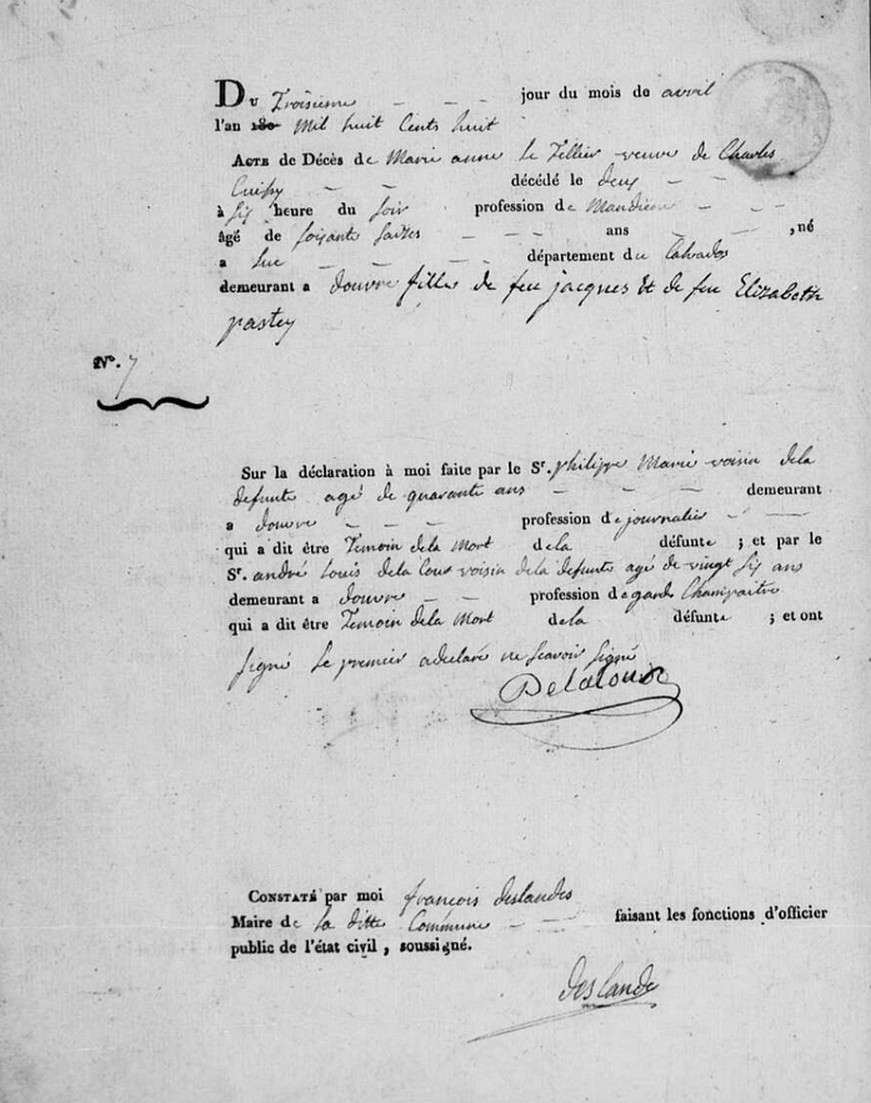 Du Troisieme — — — jour du mois de avril
l'an 180 Mil huit Cents huit
Acte de Décès de Marie anne le Tellier veuve de Charles
— — décédé le deux — —
à six heure du soir profession de — — —
âgé de soixante saizes — — — ans — — , né
a Luc — — — — — département du Calvados
demeurant a douvre fille de feu jacques Et de feu Elizabeth
pastey
N°. 7
Sur la déclaration à moi faite par le Sr. philippe Marie voisin dela
defunte agé de quarante ans — — — demeurant
a douvre — — — profession de journalier — —
qui a dit être Temoin dela Mort dela défunte ; et par le
Sr. andré Louis dela Cour voisin dela defunte agé de vingt six ans
demeurant a douvre — — profession de garde Champaitre
qui a dit être Temoin dela Mort dela défunte ; et ont
signé Le premier a declaré ne scavoir signé
Delalour
Constaté par moi françois deslandes
Maire de la ditte Commune — — faisant les fonctions d'officier
public de l'état civil , soussigné.
deslande